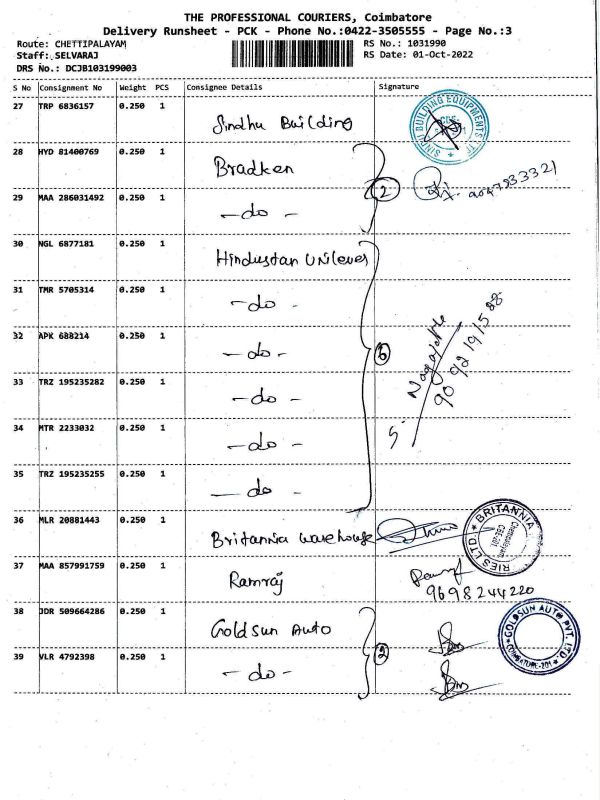 THE PROFESSIONAL COURIERS, Coimbatore
Delivery Runsheet - PCK - Phone No.:0422-3505555 - Page No.:3
Route: CHETTIPALAYAM RS No.: 1031990
Staff: SELVARAJ RS Date: 01-Oct-2022
DRS No.: DCJB103199003
S No Consignment No Weight PCS Consignee Details Signature
27 TRP 6836157 0.250 1 Sindhu Building
28 HYD 81400769 0.250 1 Bradken
29 MAA 286031492 0.250 1 - do - 2
30 NGL 6877181 0.250 1 Hindustan Unilever
31 TMR 5705314 0.250 1 - do -
32 APK 688214 0.250 1 - do - 6
33 TRZ 195235282 0.250 1 - do -
34 MTR 2233032 0.250 1 - do -
35 TRZ 195235255 0.250 1 - do -
36 MLR 20881443 0.250 1 Britannia warehouse BRITANNIA
37 MAA 857991759 0.250 1 Ramraj
9698244220
38 JDR 509664286 0.250 1 Goldsun Auto GOLDSUN AUTO PVT. LTD.
39 VLR 4792398 0.250 1 - do - 2